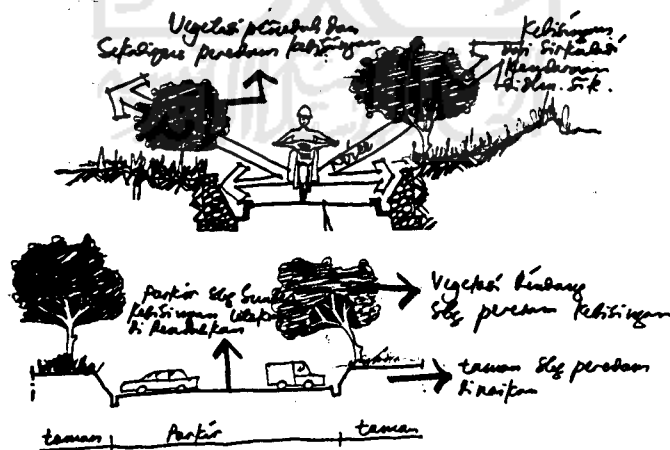 Vegetasi peneduh dan
Sekaligus peredam kebisingan
Kebisingan
dari Sirkulasi
Kendaraan
Parkir sbg Sumber
Kebisingan letaknya
di Rendahkan
Vegetasi Rindang
sbg peredam kebisingan
taman sbg peredam
di naikan
taman
Parkir
taman